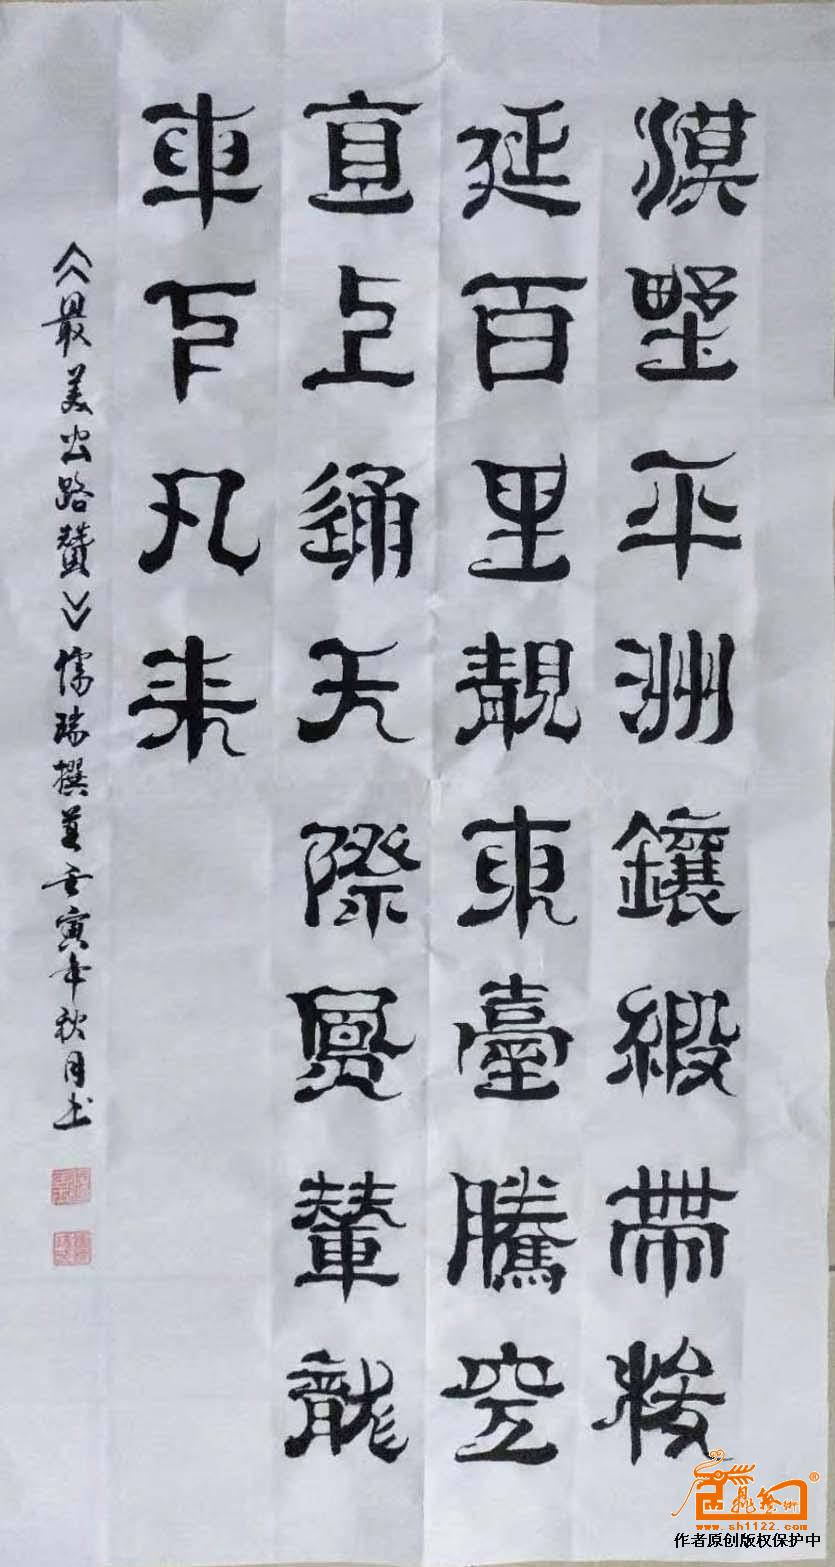 漠野平洲鑲緞帶
延百里靚東臺騰空
直上通天際鳳輦龍
車下凡来
《最美公路贊》儒瑞撰并壬寅年秋月书
®
www.sh1122.com
作者原创版权保护中